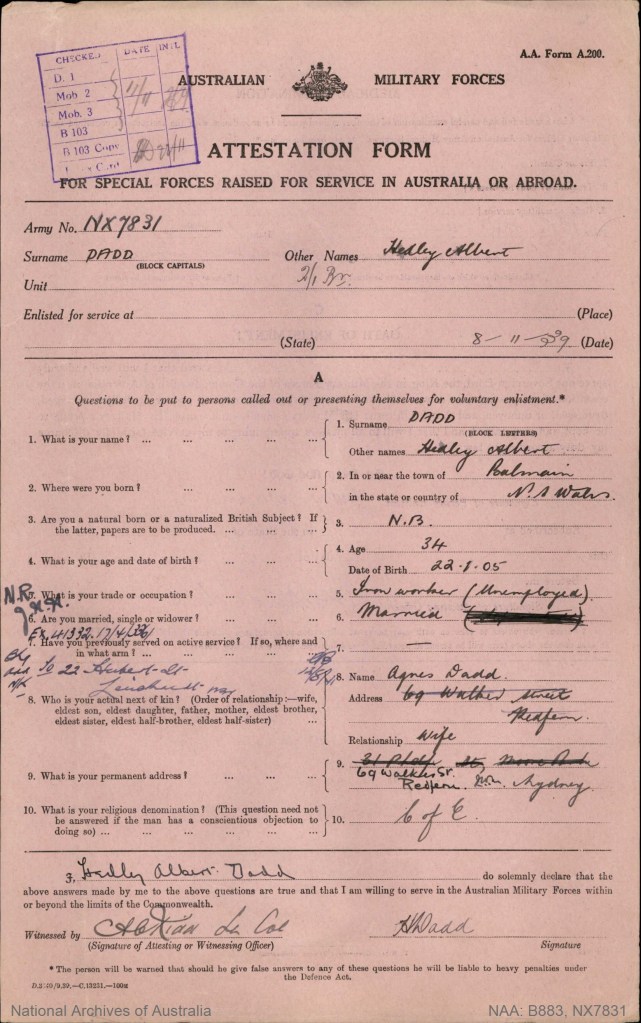 CHECKED DATE INTL
D. 1
Mob. 2
Mob. 3
B 103
B 103 Copy
A.A. Form A.200.
AUSTRALIAN MILITARY FORCES
ATTESTATION FORM
FOR SPECIAL FORCES RAISED FOR SERVICE IN AUSTRALIA OR ABROAD.
Army No. NX7831
Surname DADD Other Names Hedley Albert
(BLOCK CAPITALS)
Unit 2/1 Bn.
Enlisted for service at (Place)
(State) 8-11-39 (Date)
A
Questions to be put to persons called out or presenting themselves for voluntary enlistment.*
1. What is your name? ... ... ... ... 1. Surname DADD
(BLOCK LETTERS)
Other names Hedley Albert
2. Where were you born? ... ... ... 2. In or near the town of Balmain
in the state or country of N. S Wales
3. Are you a natural born or a naturalized British Subject? If the latter, papers are to be produced. ... ... 3. N.B.
4. What is your age and date of birth? ... ... 4. Age 34
Date of Birth 22.8.05
5. What is your trade or occupation? ... ... 5. Iron worker (Unemployed)
N.R.
6. Are you married, single or widower? ... ... 6. Married
7. Have you previously served on active service? If so, where and in what arm? ... ... ... ... 7. —
to 22 Hubert St
8. Who is your actual next of kin? (Order of relationship:—wife, eldest son, eldest daughter, father, mother, eldest brother, eldest sister, eldest half-brother, eldest half-sister) ...
8. Name Agnes Dadd
Address 69 Walker Street
Redfern.
Relationship Wife
9. What is your permanent address? ... ... 9. 31
69 Walker St. Redfern. Sydney
10. What is your religious denomination? (This question need not be answered if the man has a conscientious objection to doing so) ... ... ... ... ... 10. C of E.
I, Hedley Albert Dadd do solemnly declare that the
above answers made by me to the above questions are true and that I am willing to serve in the Australian Military Forces within
or beyond the limits of the Commonwealth.
Witnessed by HDadd
(Signature of Attesting or Witnessing Officer) Signature
* The person will be warned that should he give false answers to any of these questions he will be liable to heavy penalties under
the Defence Act.
National Archives of Australia NAA: B883, NX7831